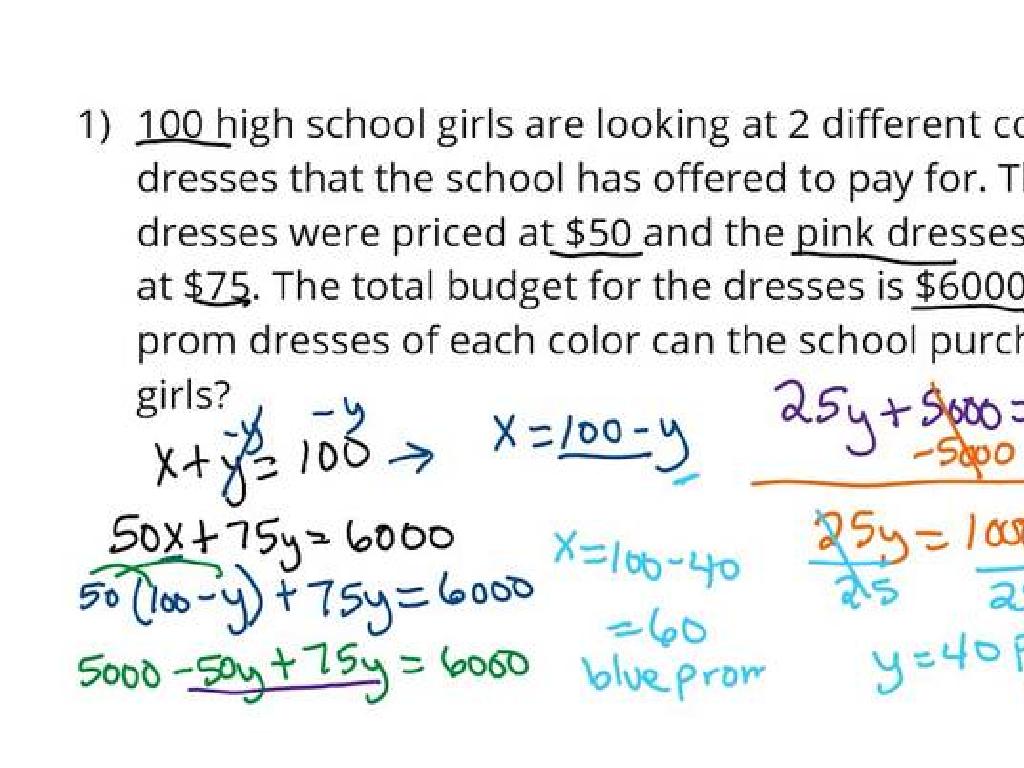 1) 100 high school girls are looking at 2 different co
dresses that the school has offered to pay for. Th
dresses were priced at $50 and the pink dresses
at $75. The total budget for the dresses is $6000
prom dresses of each color can the school purch
girls?
-y -y
x+y= 100 → x=100-y
50x+75y=6000
50(100-y)+75y=6000
5000-50y+75y=6000
25y+5000=
-5000
25y=1000
25 25
y=40 p
x=100-40
=60
blue prom